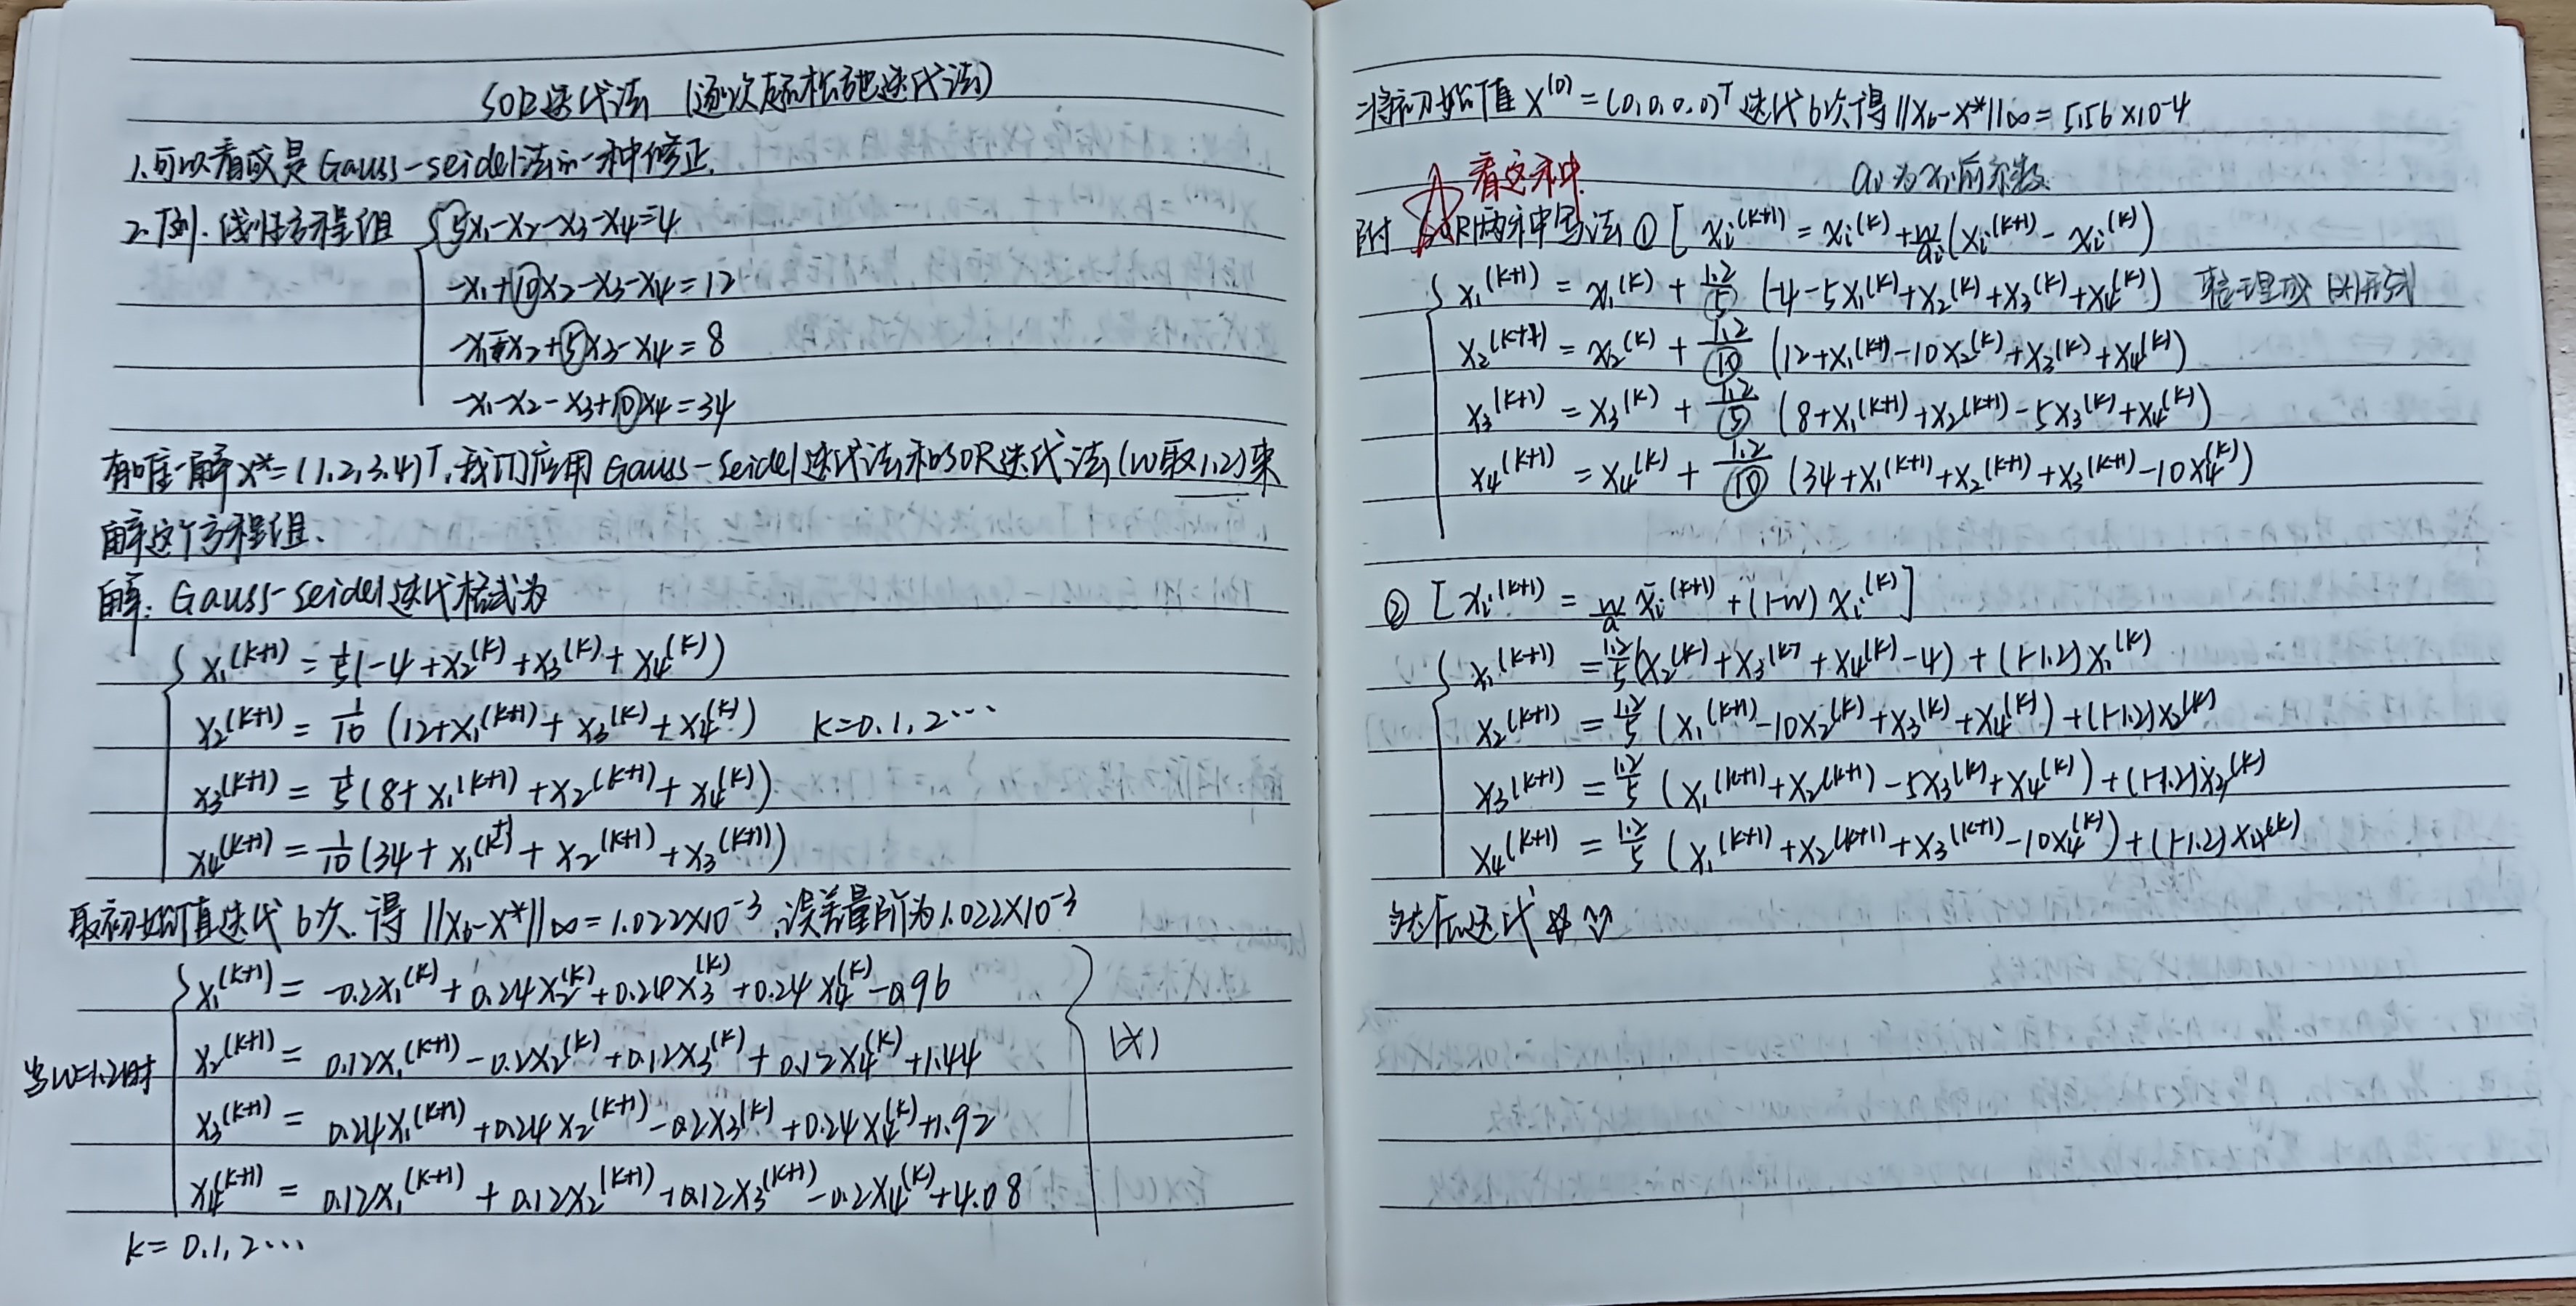 SOR迭代法 (逐次超松弛迭代法)
1.可以看成是Gauss-seidel法的一种修正.
2.下列.线性方程组 { 5x₁-x₂-x₃-x₄=4
-x₁+10x₂-x₃-x₄=12
-x₁-x₂+5x₃-x₄=8
-x₁-x₂-x₃+10x₄=34
有唯一解x*=(1,2,3,4)ᵀ,我们应用Gauss-Seidel迭代法和SOR迭代法(W取1.2)来
解这个方程组、
解: Gauss-seidel迭代格式为
{ x₁^(k+1) = 1/5(-4+x₂^(k)+x₃^(k)+x₄^(k))
x₂^(k+1) = 1/10 (12+x₁^(k+1)+x₃^(k)+x₄^(k)) k=0.1,2…
x₃^(k+1) = 1/5(8+x₁^(k+1)+x₂^(k+1)+x₄^(k))
x₄^(k+1) = 1/10(34+x₁^(k+1)+x₂^(k+1)+x₃^(k+1))
取初始值迭代6次.得||x₆-x*||∞=1.022×10⁻³,误差量阶为1.022×10⁻³
当W=1.2时 { x₁^(k+1) = -0.2x₁^(k)+0.24x₂^(k)+0.24x₃^(k)+0.24x₄^(k)-0.96
x₂^(k+1) = 0.12x₁^(k+1)-0.2x₂^(k)+0.12x₃^(k)+0.12x₄^(k)+1.44 } (*)
x₃^(k+1) = 0.24x₁^(k+1)+0.24x₂^(k+1)-0.2x₃^(k)+0.24x₄^(k)+1.92
x₄^(k+1) = 0.12x₁^(k+1)+0.12x₂^(k+1)+0.12x₃^(k+1)-0.2x₄^(k)+4.08
k=0.1,2…
将初始值x^(0)=(0,0,0,0)ᵀ迭代6次得||x₆-x*||∞=5.56×10⁻⁴
看这种
aᵢ为xᵢ前系数
附 SOR两种写法①[xᵢ^(k+1)=xᵢ^(k)+w/aᵢ(xᵢ^(k+1)-xᵢ^(k))
{ x₁^(k+1) = x₁^(k) + 1.2/5 (-4-5x₁^(k)+x₂^(k)+x₃^(k)+x₄^(k)) 整理成(*)形式
x₂^(k+1) = x₂^(k) + 1.2/10 (12+x₁^(k+1)-10x₂^(k)+x₃^(k)+x₄^(k))
x₃^(k+1) = x₃^(k) + 1.2/5 (8+x₁^(k+1)+x₂^(k+1)-5x₃^(k)+x₄^(k))
x₄^(k+1) = x₄^(k) + 1.2/10 (34+x₁^(k+1)+x₂^(k+1)+x₃^(k+1)-10x₄^(k))
②[xᵢ^(k+1) = w/a x̄ᵢ^(k+1)+(1-w)xᵢ^(k)]
{ x₁^(k+1) = 1.2/5(x₂^(k)+x₃^(k)+x₄^(k)-4)+(1-1.2)x₁^(k)
x₂^(k+1) = 1.2/5 (x₁^(k+1)-10x₂^(k)+x₃^(k)+x₄^(k))+(1-1.2)x₂^(k)
x₃^(k+1) = 1.2/5 (x₁^(k+1)+x₂^(k+1)-5x₃^(k)+x₄^(k))+(1-1.2)x₃^(k)
x₄^(k+1) = 1.2/5 (x₁^(k+1)+x₂^(k+1)+x₃^(k+1)-10x₄^(k))+(1-1.2)x₄^(k)
然后迭代